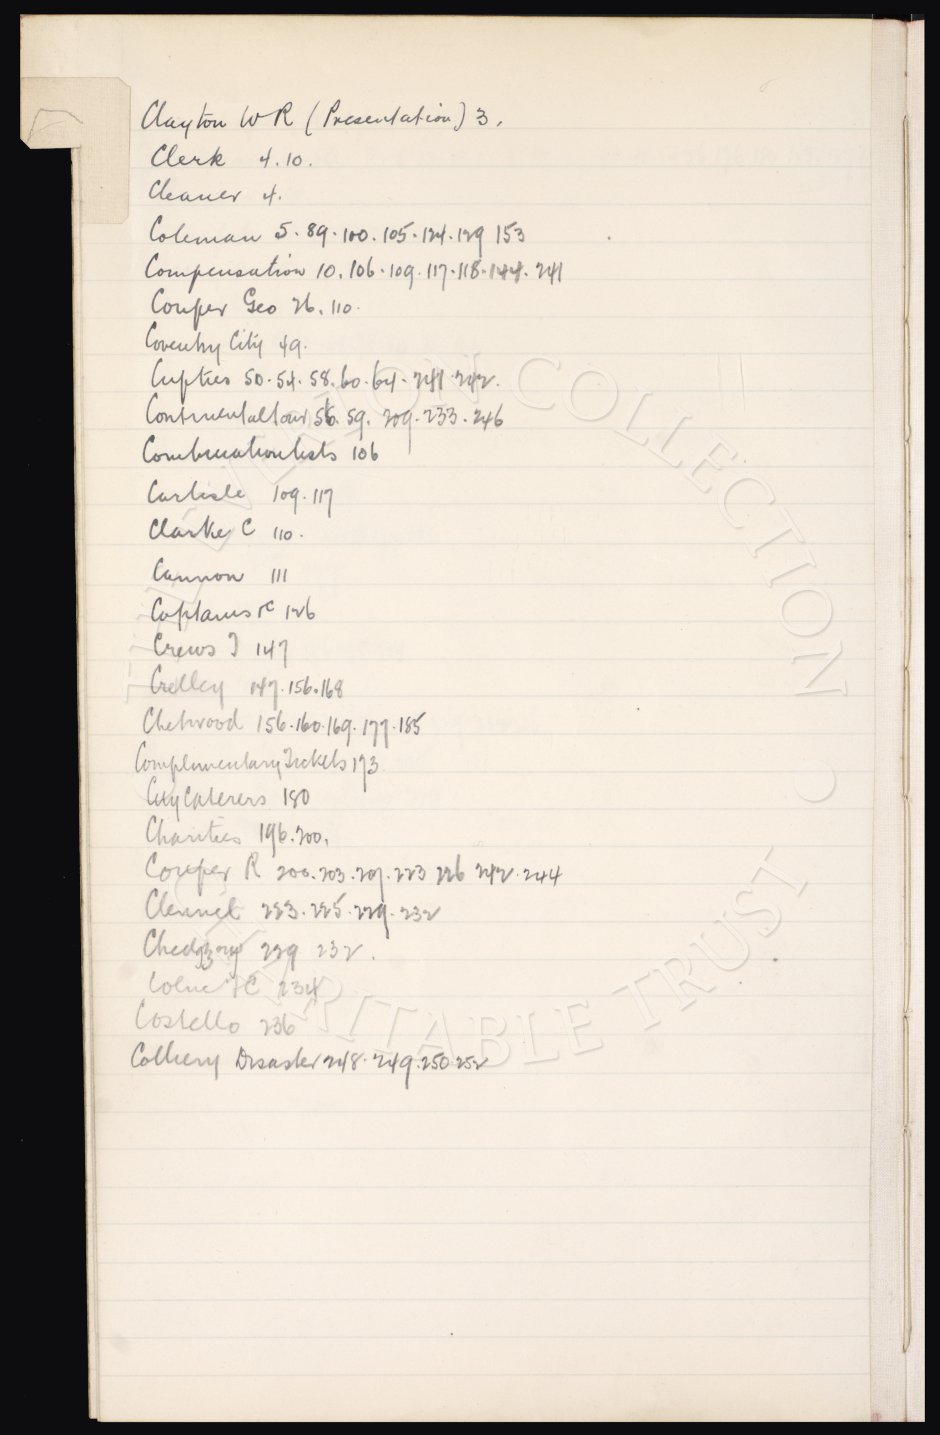 Clayton W R (Presentation) 3.
Clerk 4.10.
Cleaner 4.
Coleman 5.89.100.105.124.129 153
Compensation 10.106.109.117.118.144.241
Couper Geo 26.110.
Coventry City 49.
Cupties 50.54.58.60.64.241.242.
Continentaltour 56.59.209.233.246
Combinationlists 106
Carlisle 109.117
Clarke C 110.
Cannon 111
Captains rc 126
Crews J 147
Crelley 147.156.168
Chetwood 156.160.169.177.185
Complimentary Tickets 173
City Caterers 180
Charities 196.200.
Couper R 200.203.207.223 226 242.244
Clennel 223.225.229.232
Chedgzoy 229 232.
Colne FC 234
Costello 236
Colliery Disaster 248.249.250 252
EVERTON COLLECTION
CHARITABLE TRUST